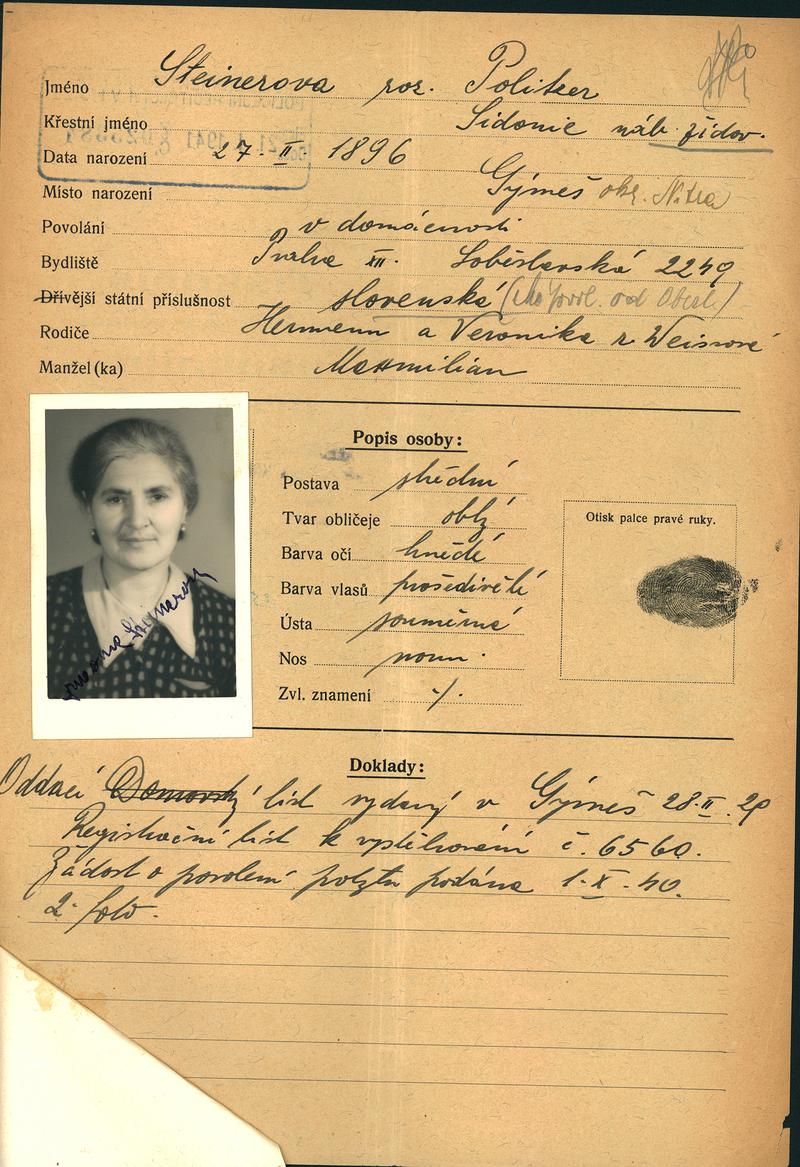 Jméno Steinerova roz. Politzer
Křestní jméno Sidonie náb. židov.
Data narození 27. II 1896
Místo narození Gýmeš okr. Nitra
Povolání v domácnosti
Bydliště Praha XII. Soběslavská 2249
Dřívější státní příslušnost slovenská (
Rodiče Hermann a Veronika r. Weissová
Manžel (ka) Maxmilian
Popis osoby:
Postava střední
Tvar obličeje oblý
Barva očí hnědé
Barva vlasů prošedivělé
Ústa souměrná
Nos norm.
Zvl. znamení ./.
Otisk palce pravé ruky.
Steinerova
Doklady:
Oddací Domovský list vydaný v Gýmeš 28.II.20
Registrační list k vystěhování č. 6560.
Žádost o povolení pobytu podána 1.X.40.
2 foto.